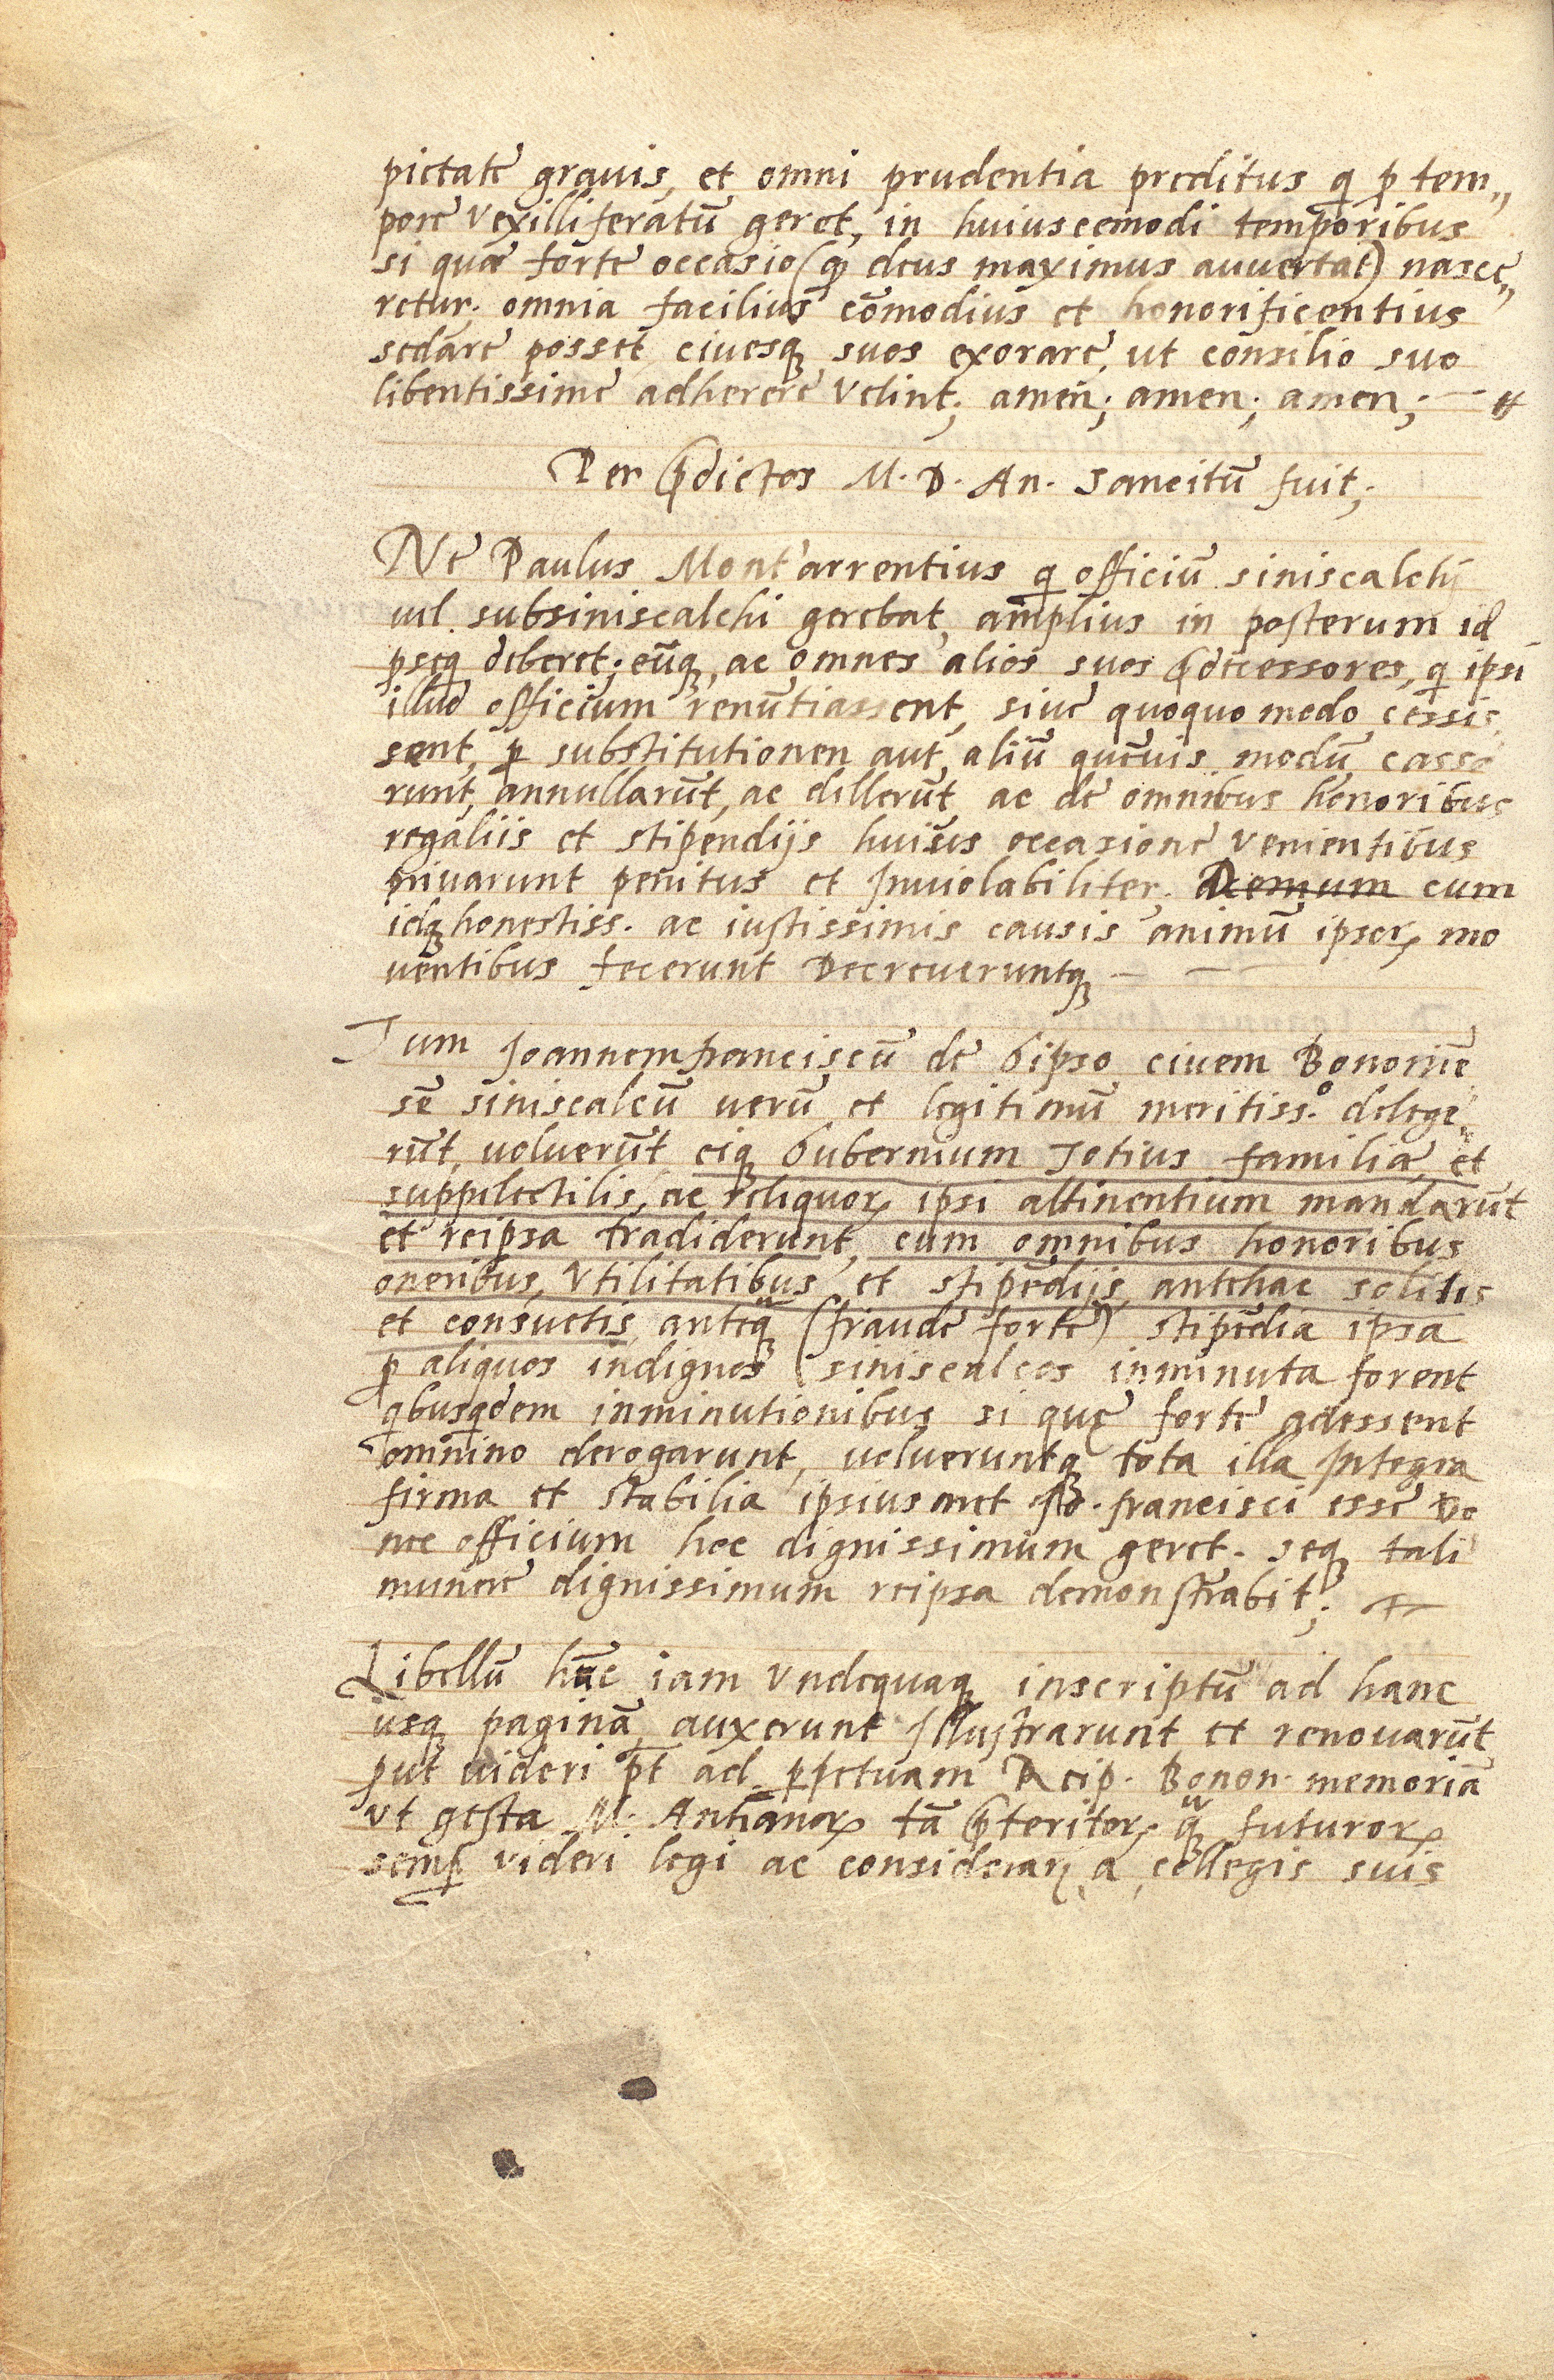 pietate grauis, et omni prudentia preditus q̄ p̄ tem„
pore vexilliferatū geret, in huiuscemodi temporibus
si qua forte occasio (qđ deus maximus auuertat) nasce„
retur; omnia facilius cōmodius et honorificentius
sedare posset, ciuesq; suos exorare, ut consilio suo
libentissime adherere velint; amen; amen; amen;
Per p̄dictos M. D. An. sancitū fuit;
Ne Paulus Montarrentius q̄ officiū siniscalchi
uel subsiniscalchi gerebat, amplius in posterum id
pseq̄ deberet; eūq;, ac omnes alios suos p̄decessores, q̄ ipsi
illud officium renūtiassent, siue quoquo modo cessis
sent, p̱ substitutionen aut aliū quēuis modū casse
runt, annullarūt, ac dillerūt, ac de omnibus honoribus
regaliis et stipendijs huius occasione venientibus
priuarunt penitus et Inuiolabiliter; Demum cum
idq; honestiss. ac iustissimis causis animū ipsoꝝ mo
uentibus fecerunt Decreueruntq;
Tum Joannemfranciscū de Gipso ciuem Bononiē
sē siniscalcū uerū et legitimū meritiss.º delege„
rūt, uoluerūt eiq; Gubernium Totius familiæ et
suppelectilis, ac reliquoꝝ ipsi attinentium mandarūt
et reipsa tradiderunt, cum omnibus honoribus
oneribus, Vtilitatibus et stipēdijs, antehac solitis
et consuetis, anteq̃; (fraude forte) stipēdia ipsa
p̱ aliquos indignos siniscalcos inminuta forent
qbusqdem inminutionibus si quę forte adessent
omnino derogarunt, uolueruntq; tota illa Integra
firma et stabilia ipsiusmet Jo. francisci esse Do
nec officium hoc dignissimum geret. seq; tali
munere dignissimum reipsa demonstrabit;
Libellū hūc iam vndequaq; inscriptū ad hanc
usq; paginā, auxerunt Illustrarunt et renouarūt
put uideri pt̄ ad ppetuam Reip. Bonon. memoriā
vt gesta M. Antianoꝝ tā p̄teritoꝝ q̃; futuroꝝ
semp̱ videri legi ac considerari a collegis suis